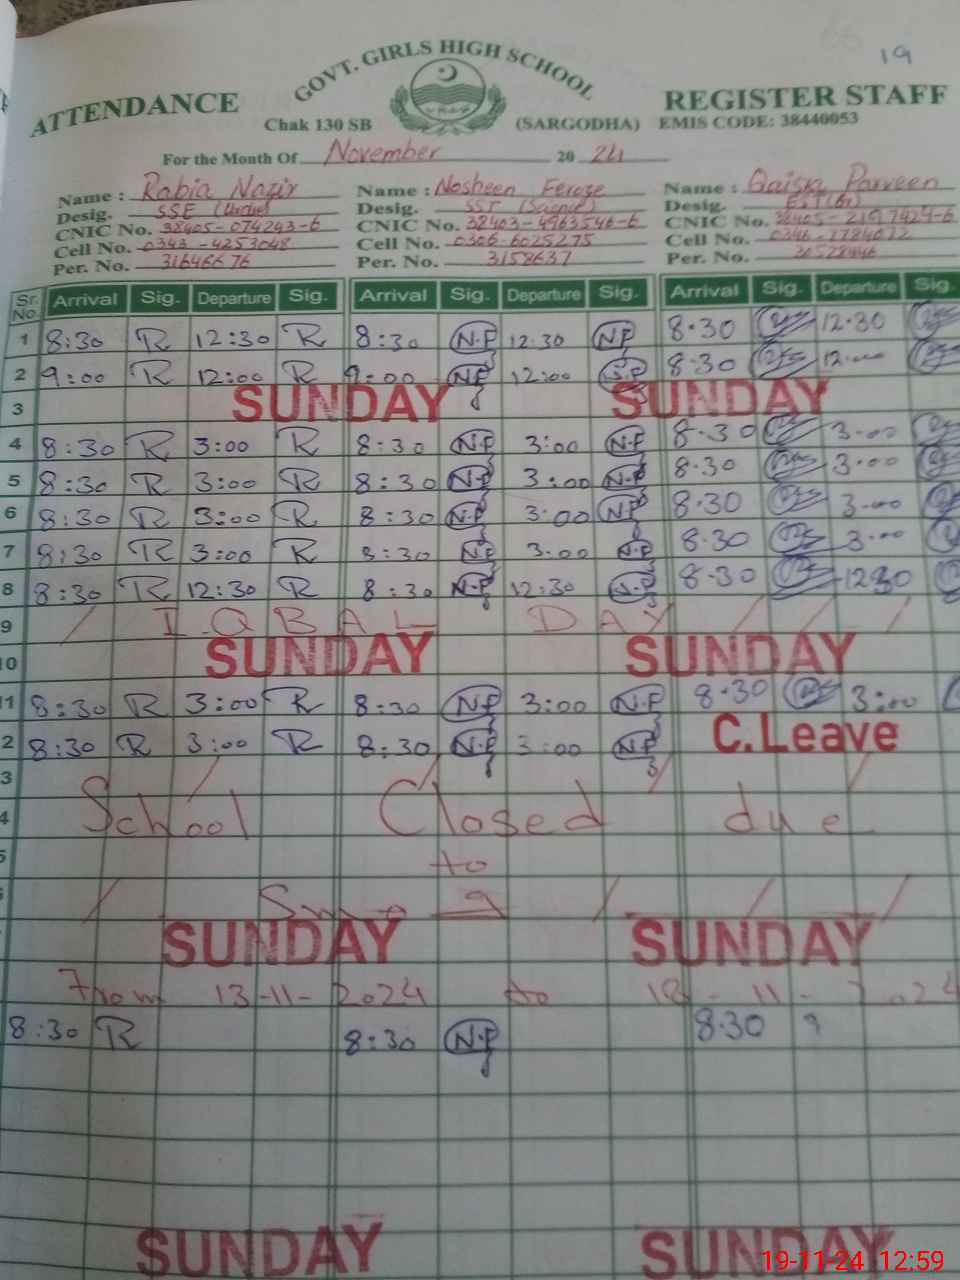 19
GOVT. GIRLS HIGH SCHOOL
ATTENDANCE REGISTER STAFF
Chak 130 SB (SARGODHA) EMIS CODE: 38440053
For the Month Of November 20 24
Name : Rabia Nazir Name : Nosheen Feroze Name : Qaisra Parveen
Desig. SSE (Urdu) Desig. SST (Science) Desig. EST
CNIC No. 38405-074243-6 CNIC No. 32403-4963546-6 CNIC No.
Cell No. 0343-4253048 Cell No. 0306-6025275 Cell No.
Per. No. 31646676 Per. No. 3158637 Per. No.
Sr. No. Arrival Sig. Departure Sig. Arrival Sig. Departure Sig. Arrival Sig. Departure Sig.
1 8:30 R 12:30 R 8:30 N.F 12.30 NF 8.30 12.30
2 9:00 R 12:00 R 9:00 NF 12:00 8.30 12.00
3 SUNDAY SUNDAY
4 8:30 R 3:00 R 8:30 N.F 3:00 N.F 8.30 3.00
5 8:30 R 3:00 R 8:30 N.F 3:00 N.F 8.30 3.00
6 8:30 R 3:00 R 8:30 N.F 3:00 N.F 8.30 3.00
7 8:30 R 3:00 R 8:30 N.F 3.00 N.F 8.30 3.00
8 8:30 R 12:30 R 8:30 N.F 12:30 8.30 12.30
9 IQBAL DAY
10 SUNDAY SUNDAY
11 8:30 R 3:00 R 8:30 N.F 3:00 N.F 8.30 3:00
2 8:30 R 3:00 R 8:30 N.F 3:00 N.F C.Leave
3
4 School Closed due
5 to
Smog
SUNDAY SUNDAY
From 13-11-2024 to 18-11-2024
8:30 R 8:30 N.F 8.30
SUNDAY SUNDAY
19-11-24 12:59